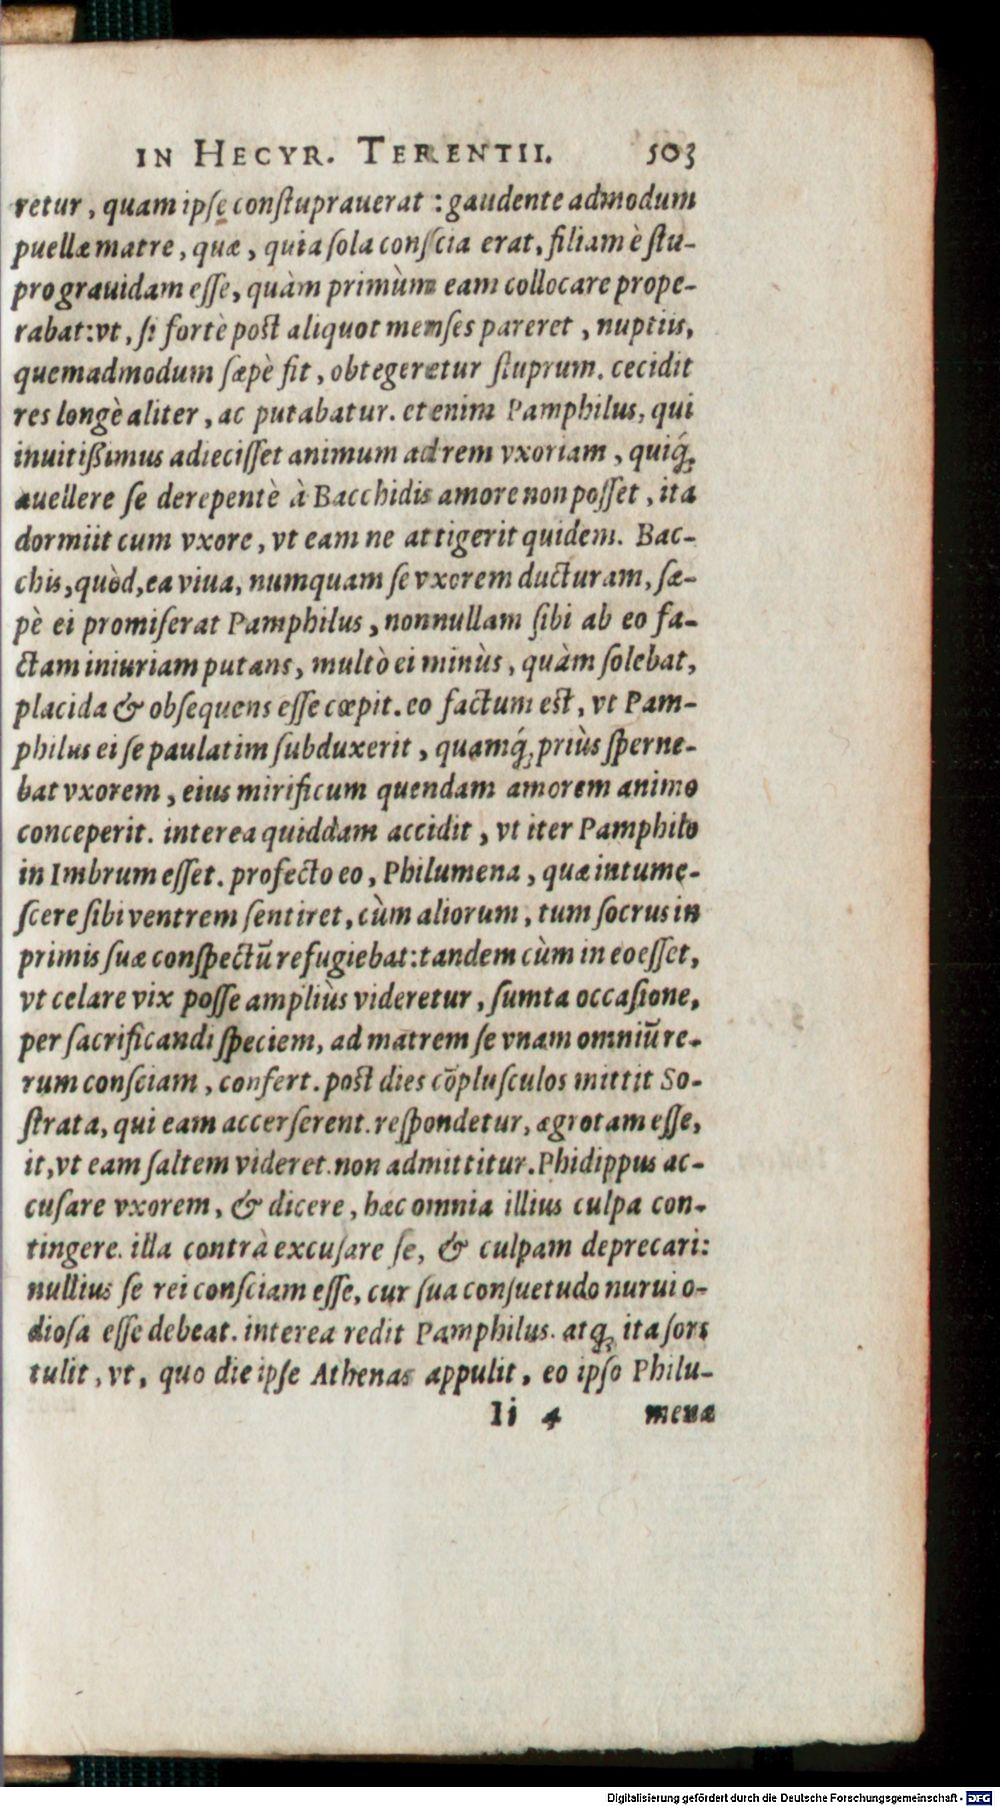 IN HECYR. TERENTII. 503
retur, quam ipſe conſtuprauerat : gaudente admodum
puellæ matre, quæ, quia ſola conſcia erat, filiam è ſtu-
pro grauidam eſſe, quàm primùm eam collocare prope-
rabat: vt, ſi fortè poſt aliquot menſes pareret, nuptiis,
quemadmodum ſæpè fit, obtegeretur ſtuprum. cecidit
res longè aliter, ac putabatur. etenim Pamphilus, qui
inuitißimus adieciſſet animum ad rem vxoriam, quiq́;
auellere ſe derepentè à Bacchidis amore non poſſet, ita
dormiit cum vxore, vt eam ne attigerit quidem. Bac-
chis, quòd, ea viua, numquam ſe vxorem ducturam, ſæ-
pè ei promiſerat Pamphilus, nonnullam ſibi ab eo fa-
ctam iniuriam putans, multò ei minùs, quàm ſolebat,
placida & obſequens eſſe cœpit. eo factum eſt, vt Pam-
philus ei ſe paulatim ſubduxerit, quamq́; priùs ſperne-
bat vxorem, eius mirificum quendam amorem animo
conceperit. interea quiddam accidit, vt iter Pamphilo
in Imbrum eſſet. profecto eo, Philumena, quæ intume-
ſcere ſibi ventrem ſentiret, cùm aliorum, tum ſocrus in
primis ſuæ conſpectũ refugiebat: tandem cùm in eo eſſet,
vt celare vix poſſe ampliùs videretur, ſumta occaſione,
per ſacrificandi ſpeciem, ad matrem ſe vnam omniũ re-
rum conſciam, confert. poſt dies cõpluſculos mittit So-
ſtrata, qui eam accerſerent. reſpondetur, ægrotam eſſe,
it, vt eam ſaltem videret. non admittitur. Phidippus ac-
cuſare vxorem, & dicere, hæc omnia illius culpa con-
tingere. illa contrà excuſare ſe, & culpam deprecari:
nullius ſe rei conſciam eſſe, cur ſua conſuetudo nurui o-
dioſa eſſe debeat. interea redit Pamphilus. atq; ita ſors
tulit, vt, quo die ipſe Athenas appulit, eo ipſo Philu-
Ii 4 menæ
Digitalisierung gefördert durch die Deutsche Forschungsgemeinschaft - DFG